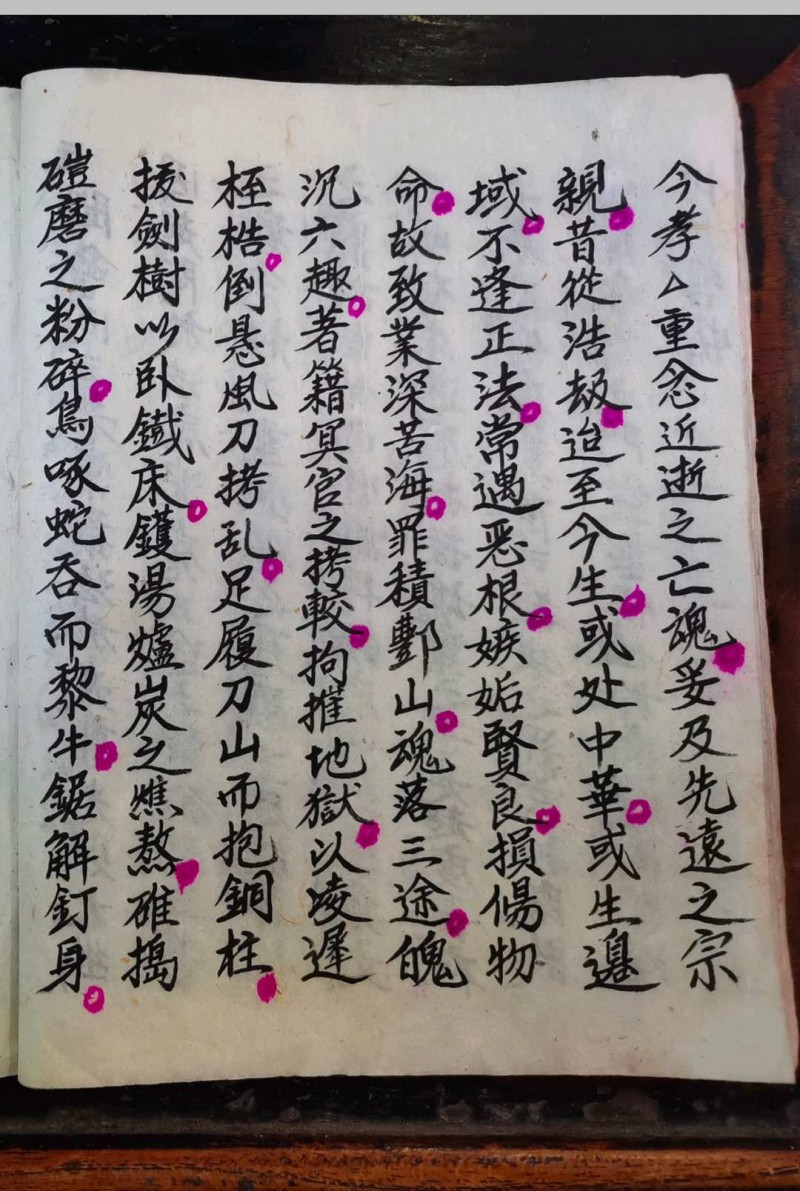 今孝厶重念近逝之亡魂妥及先遠之宗
親昔從浩劫迨至今生或处中華或生邉
域不逢正法常遇恶根嫉妬賢良損傷物
命故致業深苦海罪積酆山魂落三途魄
沉六趣著籍冥官之拷較拘摧地獄以凌遲
桎梏倒悬風刀拷乱足履刀山而抱銅柱
攀劍樹以卧鐵床鑊湯爐炭之燋熬碓搗
磑磨之粉碎鳥啄蛇吞而黎牛鋸解釘身